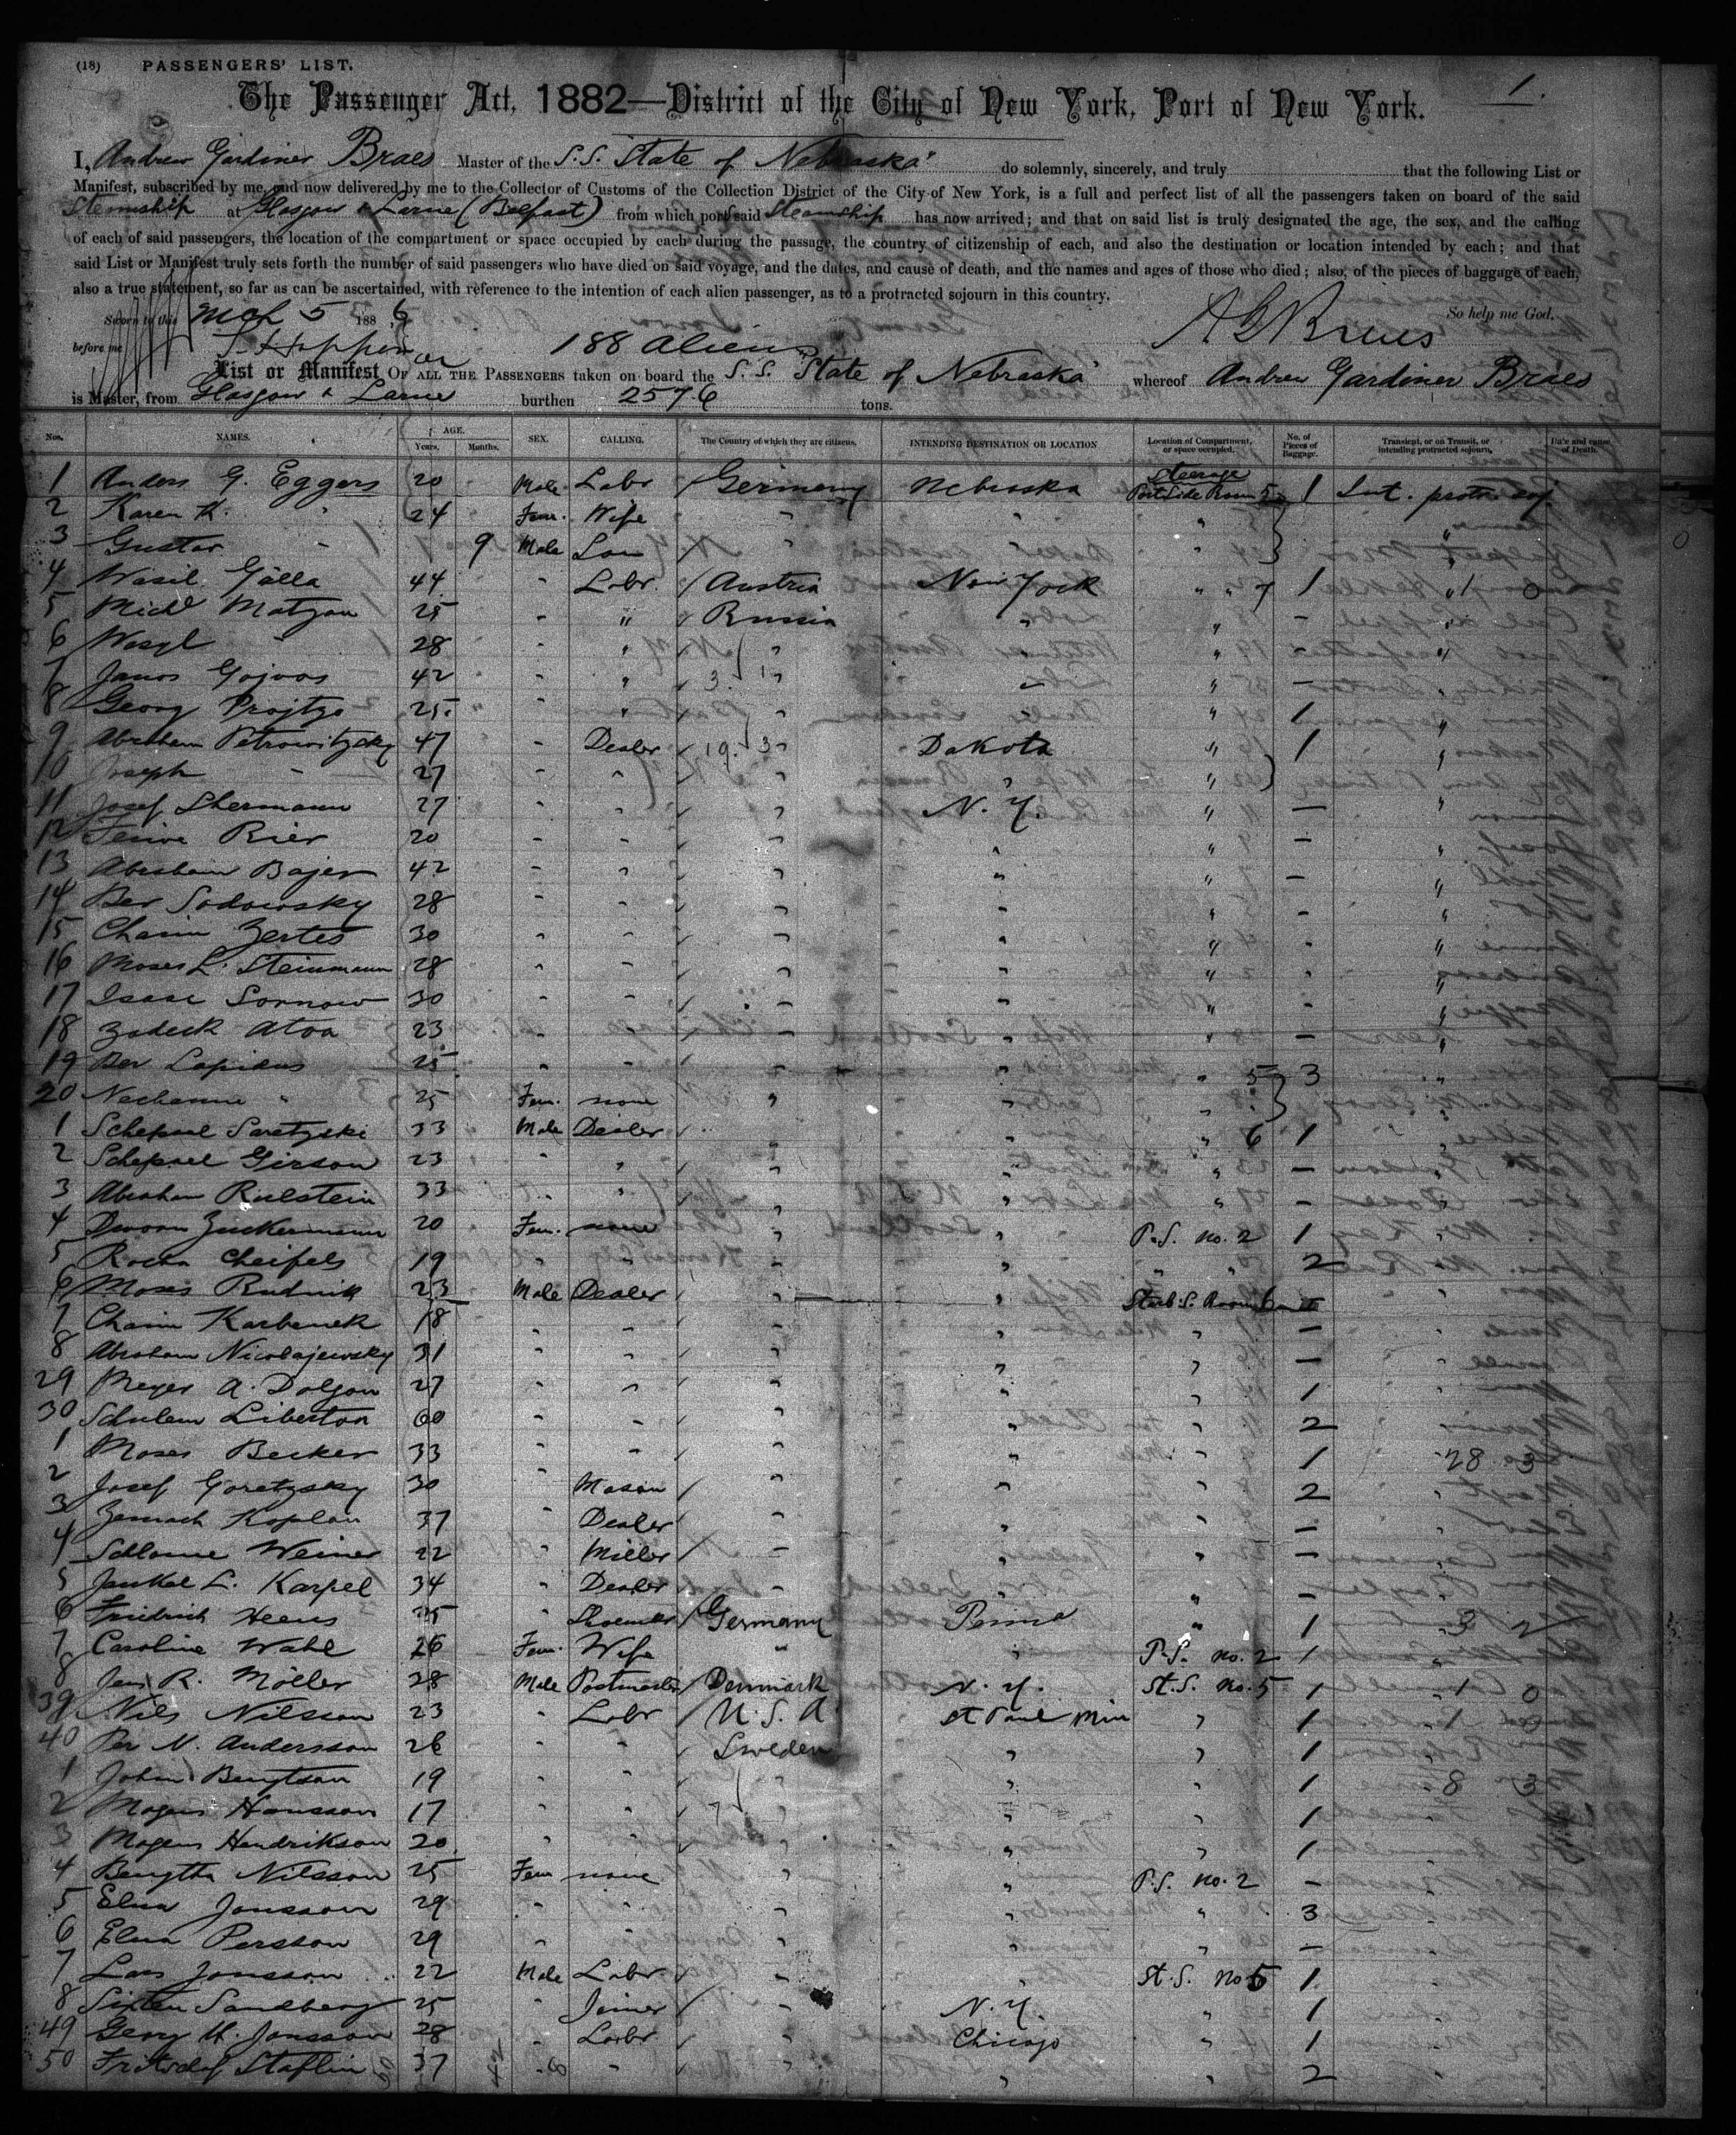 (18) PASSENGERS' LIST.
1.
The Passenger Act, 1882—District of the City of New York, Port of New York.
I, Andrew Gardiner Braes Master of the S.S. "State of Nebraska" do solemnly, sincerely, and truly that the following List or
Manifest, subscribed by me, and now delivered by me to the Collector of Customs of the Collection District of the City of New York, is a full and perfect list of all the passengers taken on board of the said
Steamship at Glasgow & Larne (Belfast) from which port said Steamship has now arrived; and that on said list is truly designated the age, the sex, and the calling
of each of said passengers, the location of the compartment or space occupied by each during the passage, the country of citizenship of each, and also the destination or location intended by each; and that
said List or Manifest truly sets forth the number of said passengers who have died on said voyage, and the dates, and cause of death, and the names and ages of those who died; also, of the pieces of baggage of each,
also a true statement, so far as can be ascertained, with reference to the intention of each alien passenger, as to a protracted sojourn in this country.
Sworn to this Mch 5 1886 So help me God.
before me 188 Aliens A G Braes
List or Manifest OF ALL THE PASSENGERS taken on board the S.S. "State of Nebraska" whereof Andrew Gardiner Braes
is Master, from Glasgow & Larne burthen 2576 tons.
Nos. NAMES. AGE. Years. Months. SEX. CALLING. The Country of which they are citizens. INTENDING DESTINATION OR LOCATION Location of Compartment, or space occupied. No. of Pieces of Baggage. Transient, or on Transit, or intending protracted sojourn. Date and cause of Death.
1 Anders G. Eggers 20 Male Labr Germany Nebraska Steerage Port Side Room 5 1 Int. prot. soj.
2 Karen K. " 24 Fem. Wife " " " "
3 Gustav " 9 Male Son " " " "
4 Wasil Gälla 44 " Labr. Austria New York " " 7 1 " 1 0
5 Michl Matzan 25 " " Russia " " - "
6 Wasyl " 28 " " " " " "
7 Janos Gojvos 42 " " " " " - "
8 Georg Projtzo 25 " " " " " 1 "
9 Abraham Petrowitzsky 47 " Dealer " Dakota " 1 "
10 Joseph " 27 " " " " "
11 Josef Shermann 27 " " " N. Y. " - "
12 Rier 20 " " " " " - "
13 Abraham Bajer 42 " " " " " - "
14 Ber Sodowsky 28 " " " " " - "
15 Chaim Zertes 30 " " " " " - "
16 Moses L. Steinmann 28 " " " " " - "
17 Isaac Sornow 30 " " " " " - "
18 Zodeck Atoa 23 " " " " " - "
19 Ber Lapidus 25 " " " " " 5 3 "
20 Nechanne " 25 Fem. none " " " "
1 Schepsel Saretzski 33 Male Dealer " " 6 1 "
2 Schepsel Girson 23 " " " " " - "
3 Abraham Rulstein 33 " " " " " - "
4 Dworn Zuckermann 20 Fem. none " " P.S. No. 2 1 "
5 Rocha Cheifels 19 " " " " " " 2 "
6 Moses Rudnik 23 Male Dealer " " Starb. S. Room 6 "
7 Chaim Karbenek 18 " " " " " - "
8 Abraham Nicolajewsky 31 " " " " " - "
29 Meyer A. Dolgon 27 " " " " " 1 "
30 Schulem Liberton 60 " " " " " 2 "
1 Moses Becker 33 " " " " " 1 " 28 3
2 Josef Goretzsky 30 " Mason " " " 2 "
3 Zemach Koplan 37 " Dealer " " " - "
4 Schlome Weiner 22 " Miller " " " - "
5 Jankel L. Karpel 34 " Dealer " " " - "
6 Friedrich Heens 25 " Shoemkr Germany Penna " 1 3 2
7 Caroline Wahl 26 Fem. Wife " " P.S. No. 2 1 "
8 Jens R. Möller 28 Male Postmaster Denmark N. Y. St. S. No. 5 1 1 0
39 Nils Nilsson 23 " Labr U. S. A St Paul Min " 1 1
40 Per N. Andersson 26 " " Sweden " " 1 "
1 John Bengtson 19 " " " " " 1 8 3
2 Mogens Hansson 17 " " " " " 1 "
3 Mogens Hendrikson 20 " " " " " 1 "
4 Bengtha Nilsson 25 Fem none " " P.S. No. 2 - "
5 Elna Jonsson 29 " " " " " 3 "
6 Elna Persson 29 " " " " " - "
7 Lars Jonsson 22 Male Labr. " " St. S. No 5 1 "
8 Sixten Sandberg 25 " Joiner " N. Y. " 1 "
49 Georg H. Jonsson 28 " Labr. " Chicago " 1 "
50 Fritsdof Staflin 37 " " " " " 2 "